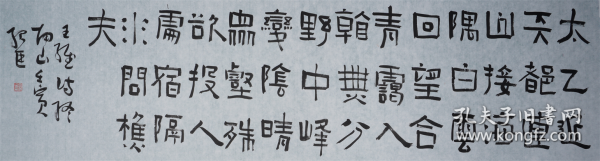 太乙近
天都連
山接海
隅白雲
回望合
青靄入
看無分
野中峰
變陰晴
眾壑殊
欲投人
處宿隔
水問樵
夫
王維詩終
南山
孔夫子旧书网